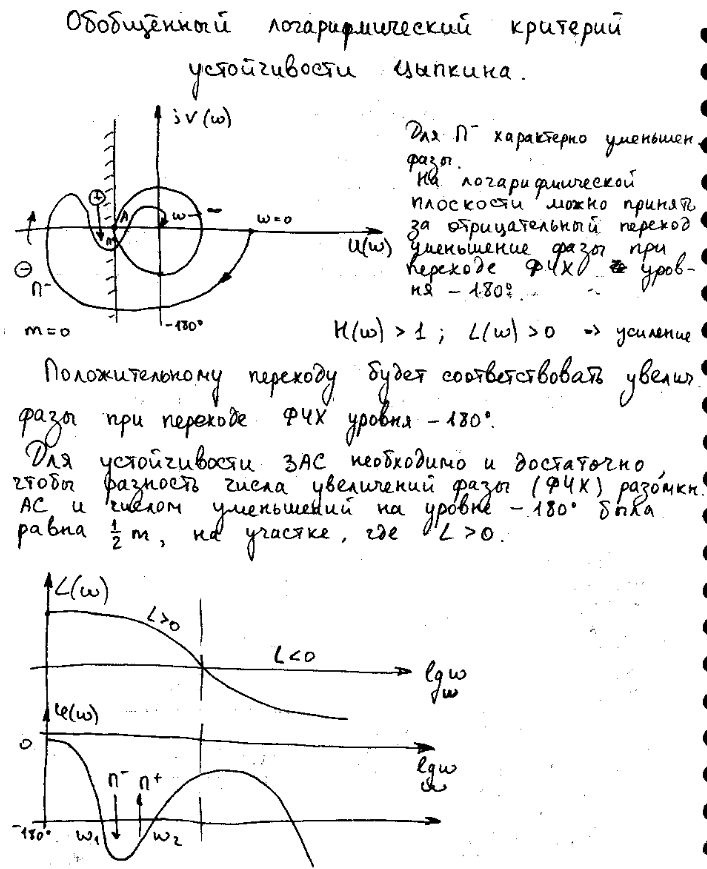 Обобщённый логарифмический критерий
устойчивости Цыпкина.
jV(ω)
Для П⁻ характерно уменьшен.
фазы.
На логарифмической
плоскости можно принять
за отрицательный переход
уменьшение фазы при
переходе ФЧХ уров-
ня -180°.
+
A
ω
ω=0
U(ω)
−
П⁻
m=0
-180°
H(ω) > 1 ; L(ω) > 0 => усиление
Положительному переходу будет соответствовать увелич.
фазы при переходе ФЧХ уровня -180°.
Для устойчивости ЗАС необходимо и достаточно,
чтобы разность числа увеличений фазы (ФЧХ) разомкн.
АС и числом уменьшений на уровне -180° была
равна ½ m, на участке, где L > 0.
L(ω)
L>0
L<0
lg ω
ω
φ(ω)
0
lg ω
ω
П⁻ П⁺
-180° ω₁ ω₂